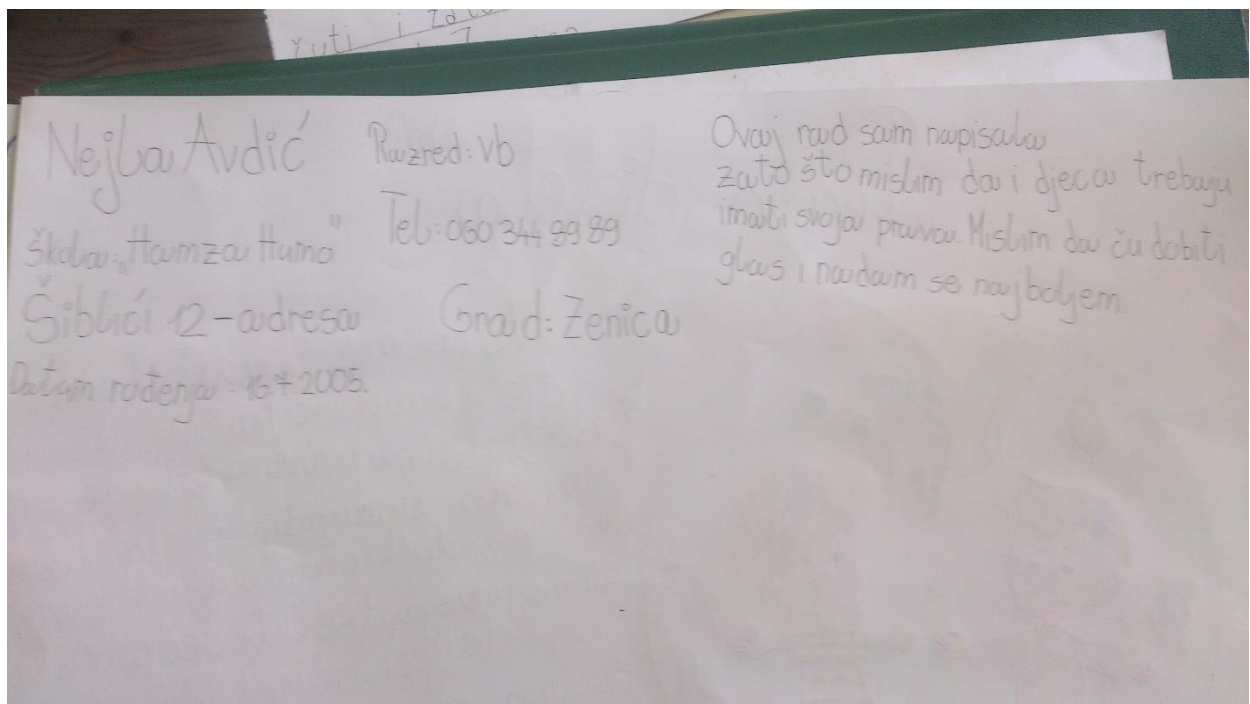 čuti i zdr
Nejla Avdić
Razred: Vb
Škola: „Hamza Humo"
Tel: 060 344 89 89
Šiblići 12-adresa
Grad: Zenica
Datum rođenja: 16.7 2005.
Ovaj rad sam napisala
zato što mislim da i djeca trebaju
imati svoja prava. Mislim da ću dobiti
glas i nadam se najboljem.